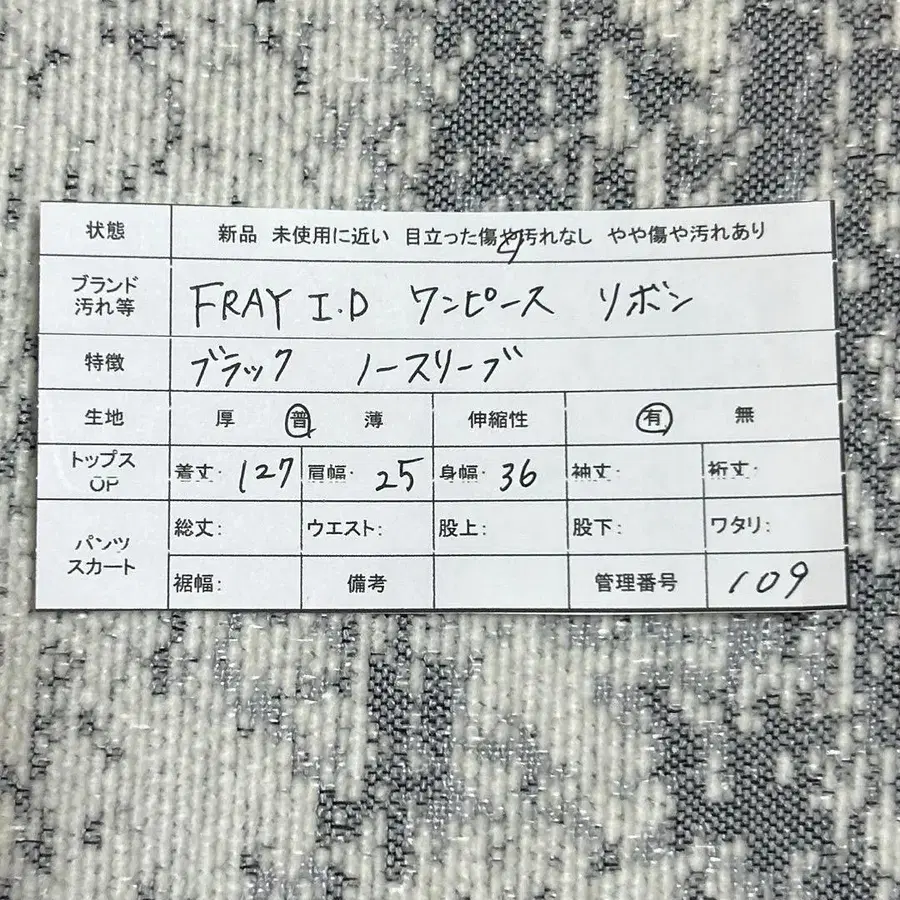 状態 新品 未使用に近い 目立った傷や汚れなし やや傷や汚れあり
ブランド
汚れ等 FRAY I.D ワンピース リボン
特徴 ブラック ノースリーブ
生地 厚 普 薄 伸縮性 有 無
トップス
OP 着丈: 127 肩幅: 25 身幅: 36 袖丈: 裄丈:
パンツ
スカート 総丈: ウエスト: 股上: 股下: ワタリ:
裾幅: 備考 管理番号 109